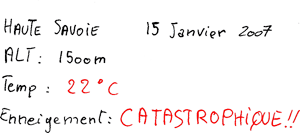 HAUTE SAVOIE 15 Janvier 2007
ALT : 1500m
Temp : 22°C
Enneigement : CATASTROPHIQUE!!